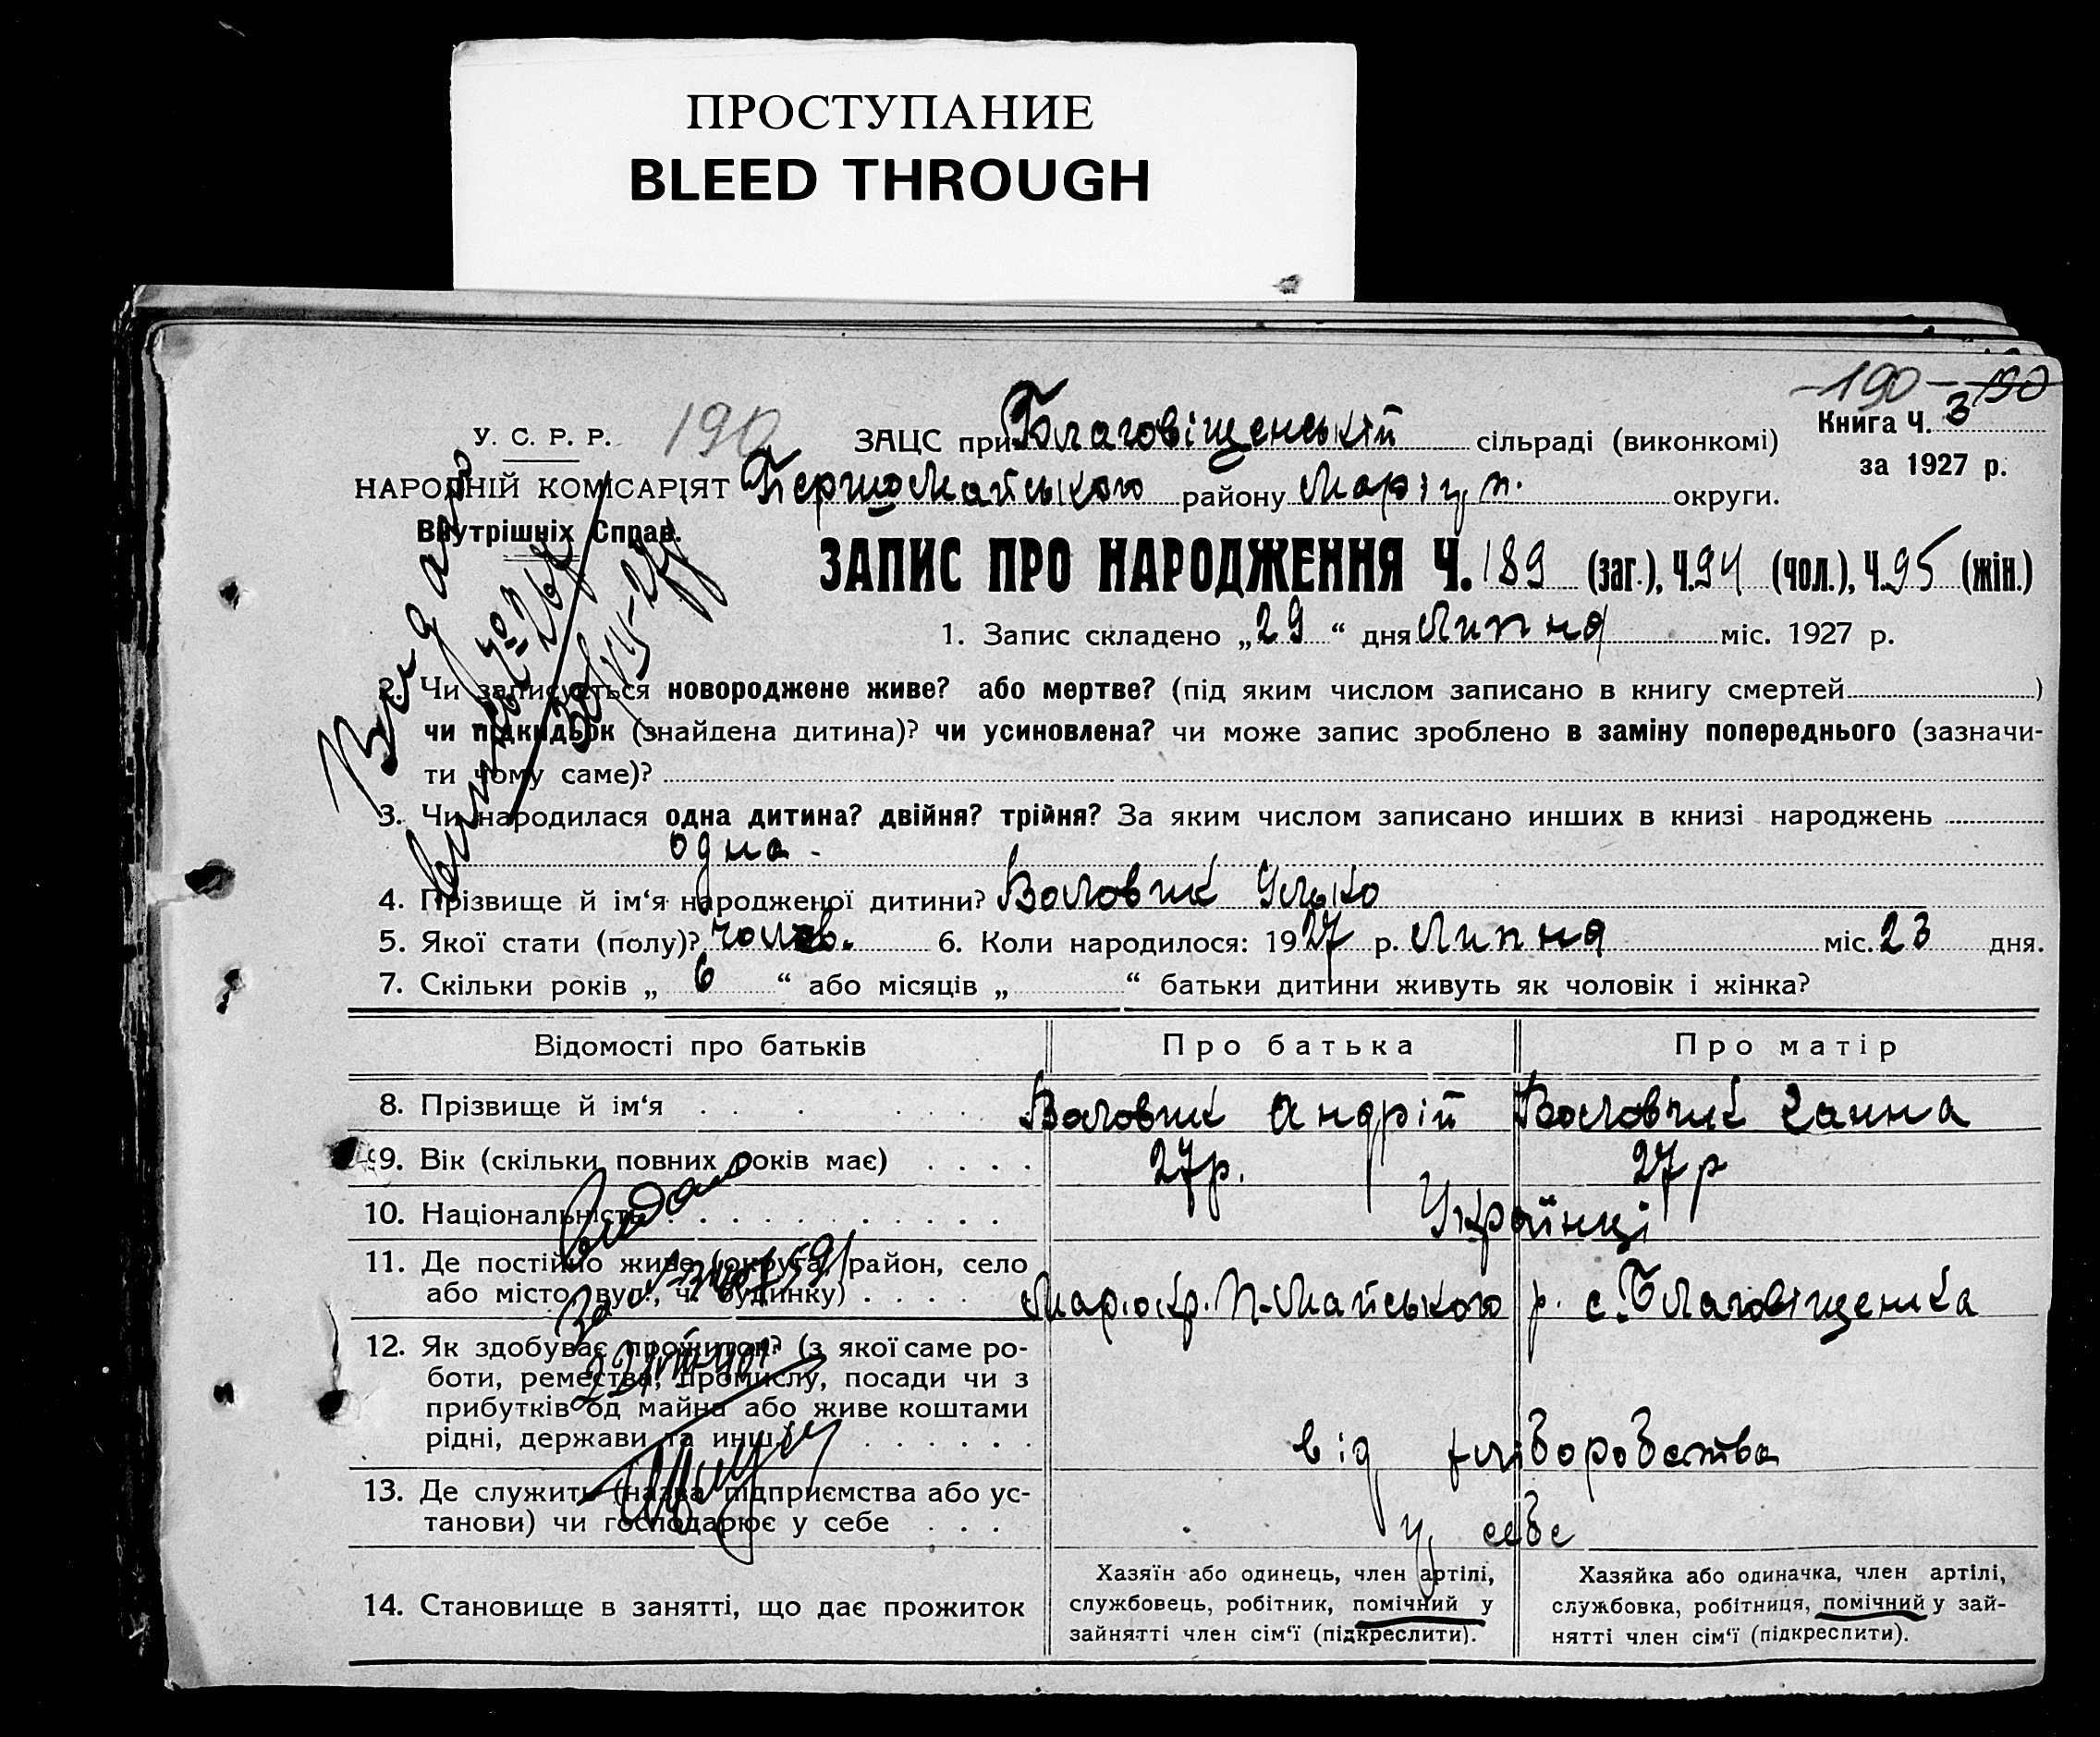 ПРОСТУПАНИЕ
BLEED THROUGH
-190- 190
У. С. Р. Р. 190 ЗАЦС при Благовіщенській сільраді (виконкомі) Книга Ч. 3
за 1927 р.
НАРОДНІЙ КОМІСАРІЯТ Першомайського району Маріуп. округи.
Внутрішніх Справ.
ЗАПИС ПРО НАРОДЖЕННЯ Ч. 189 (заг.), Ч. 94 (чол.), Ч. 95 (жін.)
1. Запис складено „29“ дня Липня міс. 1927 р.
2. Чи записується новороджене живе? або мертве? (під яким числом записано в книгу смертей)
чи підкидьок (знайдена дитина)? чи усиновлена? чи може запис зроблено в заміну попереднього (зазначи-
ти чому саме)?
3. Чи народилася одна дитина? двійня? трійня? За яким числом записано инших в книзі народжень
одна -
4. Прізвище й ім‘я народженої дитини? Воловик Ілько
5. Якої стати (полу)? чолов. 6. Коли народилося: 1927 р. Липня міс. 23 дня.
7. Скільки років „ 6 “ або місяців „ “ батьки дитини живуть як чоловік і жінка?
Відомості про батьків Про батька Про матір
8. Прізвище й ім‘я Воловик Андрій Воловик Ганна
9. Вік (скільки повних років має) 27р. 27р
10. Національність Українці
11. Де постійно живе (округа, район, село
або місто, вул., ч. будинку) Мар.окр. П-Майського р. с. Благовіщенка
12. Як здобуває прожиток? (з якої саме ро-
боти, ремества, промислу, посади чи з
прибутків од майна або живе коштами
рідні, держави та инш.) від хліборобства
13. Де служить (назва підприємства або ус-
танови) чи господарює у себе у себе
14. Становище в занятті, що дає прожиток
Хазяїн або одинець, член артілі,
службовець, робітник, помічний у
зайнятті член сім‘ї (підкреслити).
Хазяйка або одиначка, член артілі,
службовка, робітниця, помічний у зай-
нятті член сім‘ї (підкреслити).
Видано